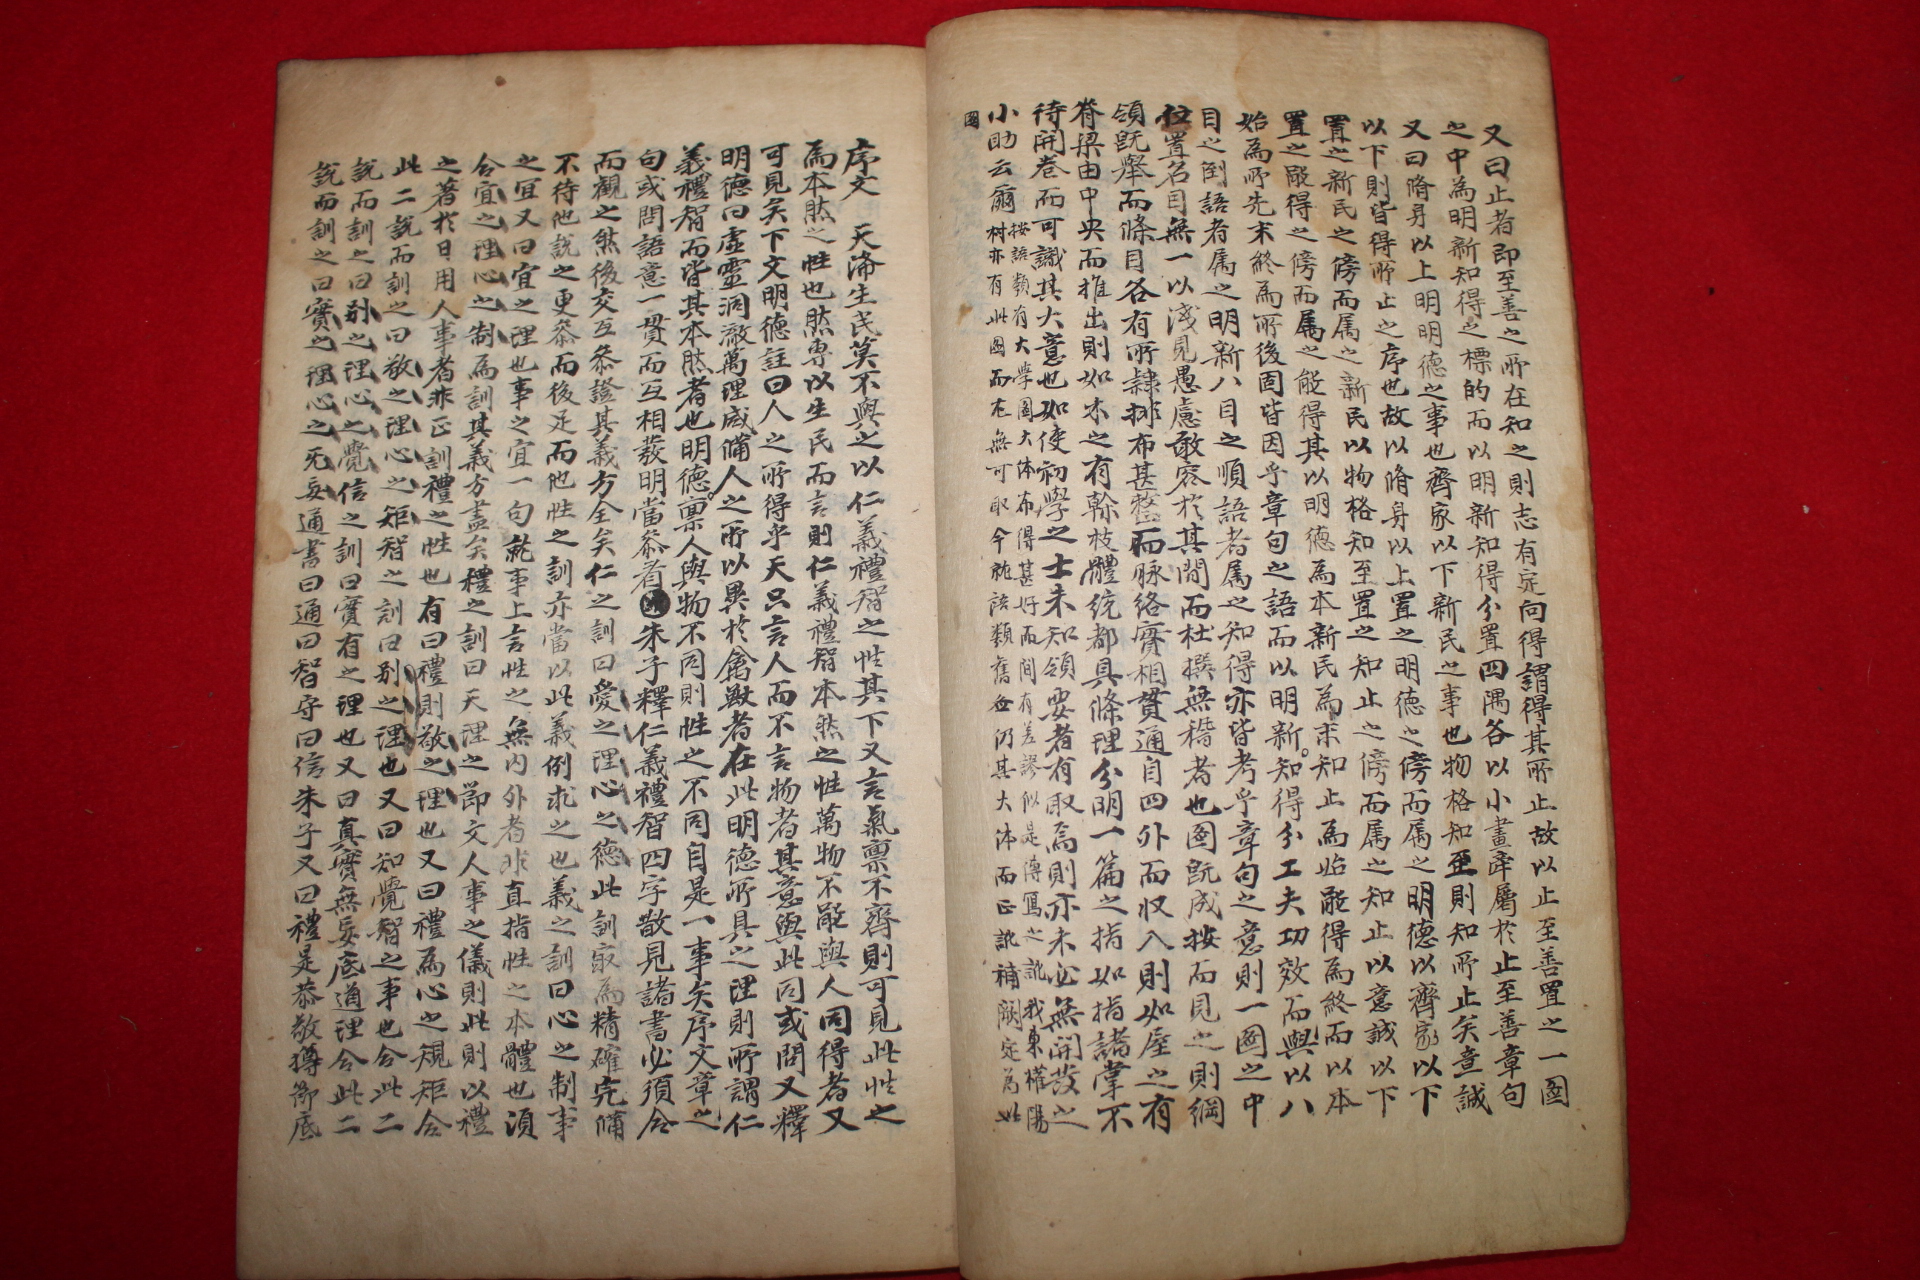 又曰止者即至善之所在知之則志有定向得謂得其所止故以止至善置之一圖
之中為明新知得之標的而以明新知得分置四隅各以小畫牽屬於止至善章句
又曰脩身以上明明德之事也齊家以下新民之事也物格知至則知所止矣意誠
以下則皆得所止之序也故以脩身以上置之明德之傍而属之明德以齊家以下
置之新民之傍而属之新民以物格知至置之知止之傍而属之知止以意誠以下
置之能得之傍而属之能得其以明德為本新民為末知止為始能得為終而以本
始為所先末終為所後固皆因乎章句之語而以明新知得分工夫功效而與以八
目之倒語者属之明新八目之順語者属之知得亦皆考乎章句之意則一圖之中
位置名目無一以淺見愚慮敢容於其間而杜撰無稽者也圖既成按而見之則綱
領既舉而條目各有所隷排布甚整而脉絡實相貫通自四外而収入則如屋之有
脊梁由中央而推出則如木之有幹枝體統都具條理分明一篇之指如指諸掌不
待開卷而可識其大意也如使初學之士未知領要者有取焉則亦未必無開發之
小助云爾
按語類有大學圖大体布得甚好而間有差謬似是傳寫之訛我東權陽
村亦有此圖而在無可取今就語類舊圖仍其大体而正訛補闕定為此
圖
序文 天降生民莫不與之以仁義禮智之性其下又言氣稟不齊則可見此性之
為本然之性也然專以生民而言則仁義禮智本然之性萬物不能與人同得者又
可見矣下文明德註曰人之所得乎天只言人而不言物者其意與此同或問又釋
明德曰虛靈洞澈萬理咸備人之所以異於禽獸者在此明德所具之理則所謂仁
義禮智而皆其本然者也明德稟人與物不同則性之不同自是一事矣序文章之
句或問語意一貫而互相發明當叅看 朱子釋仁義禮智四字散見諸書必須合
而觀之然後交互叅證其義方全矣仁之訓曰愛之理心之德此訓最為精確完備
不待他說之更叅而後足而他性之訓亦當以此義例求之也義之訓曰心之制事
之宜又曰宜之理也事之宜一句就事上言性之無内外者非直指性之本體也須
合宜之理心之制為訓其義方盡矣禮之訓曰天理之節文人事之儀則此則以禮
之著於日用人事者非正訓禮之性也有曰禮則敬之理也又曰禮為心之規矩合
此二說而訓之曰敬之理心之矩智之訓曰别之理也又曰知覺智之事也合此二
說而訓之曰别之理心之覺信之訓曰實有之理也又曰真實無妄底道理合此二
說而訓之曰實之理心之无妄通書曰通曰智守曰信朱子又曰禮是恭敬撙節底